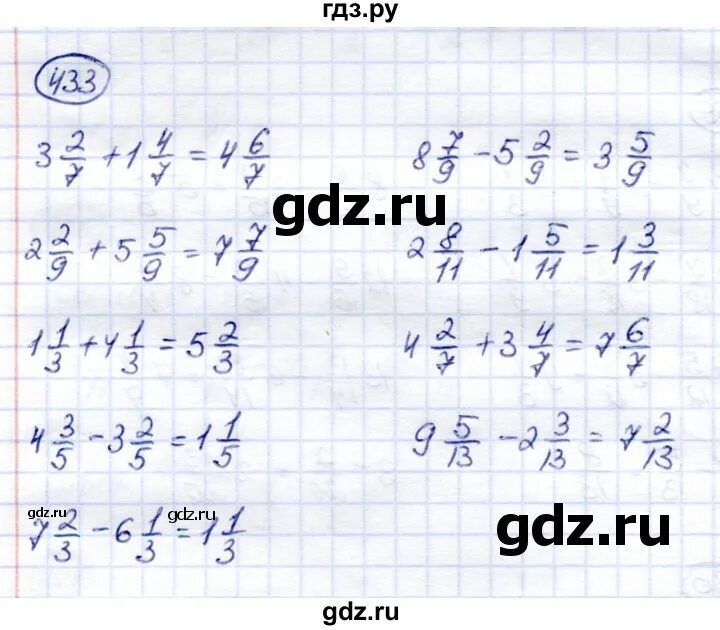 гдз.ру
433
3 2/7 + 1 4/7 = 4 6/7
8 7/9 - 5 2/9 = 3 5/9
gdz.ru
2 2/9 + 5 5/9 = 7 7/9
2 8/11 - 1 5/11 = 1 3/11
1 1/3 + 4 1/3 = 5 2/3
4 2/7 + 3 4/7 = 7 6/7
4 3/5 - 3 2/5 = 1 1/5
9 5/13 - 2 3/13 = 7 2/13
gdz.ru
gdz.ru
7 2/3 - 6 1/3 = 1 1/3
gdz.ru
gdz.ru